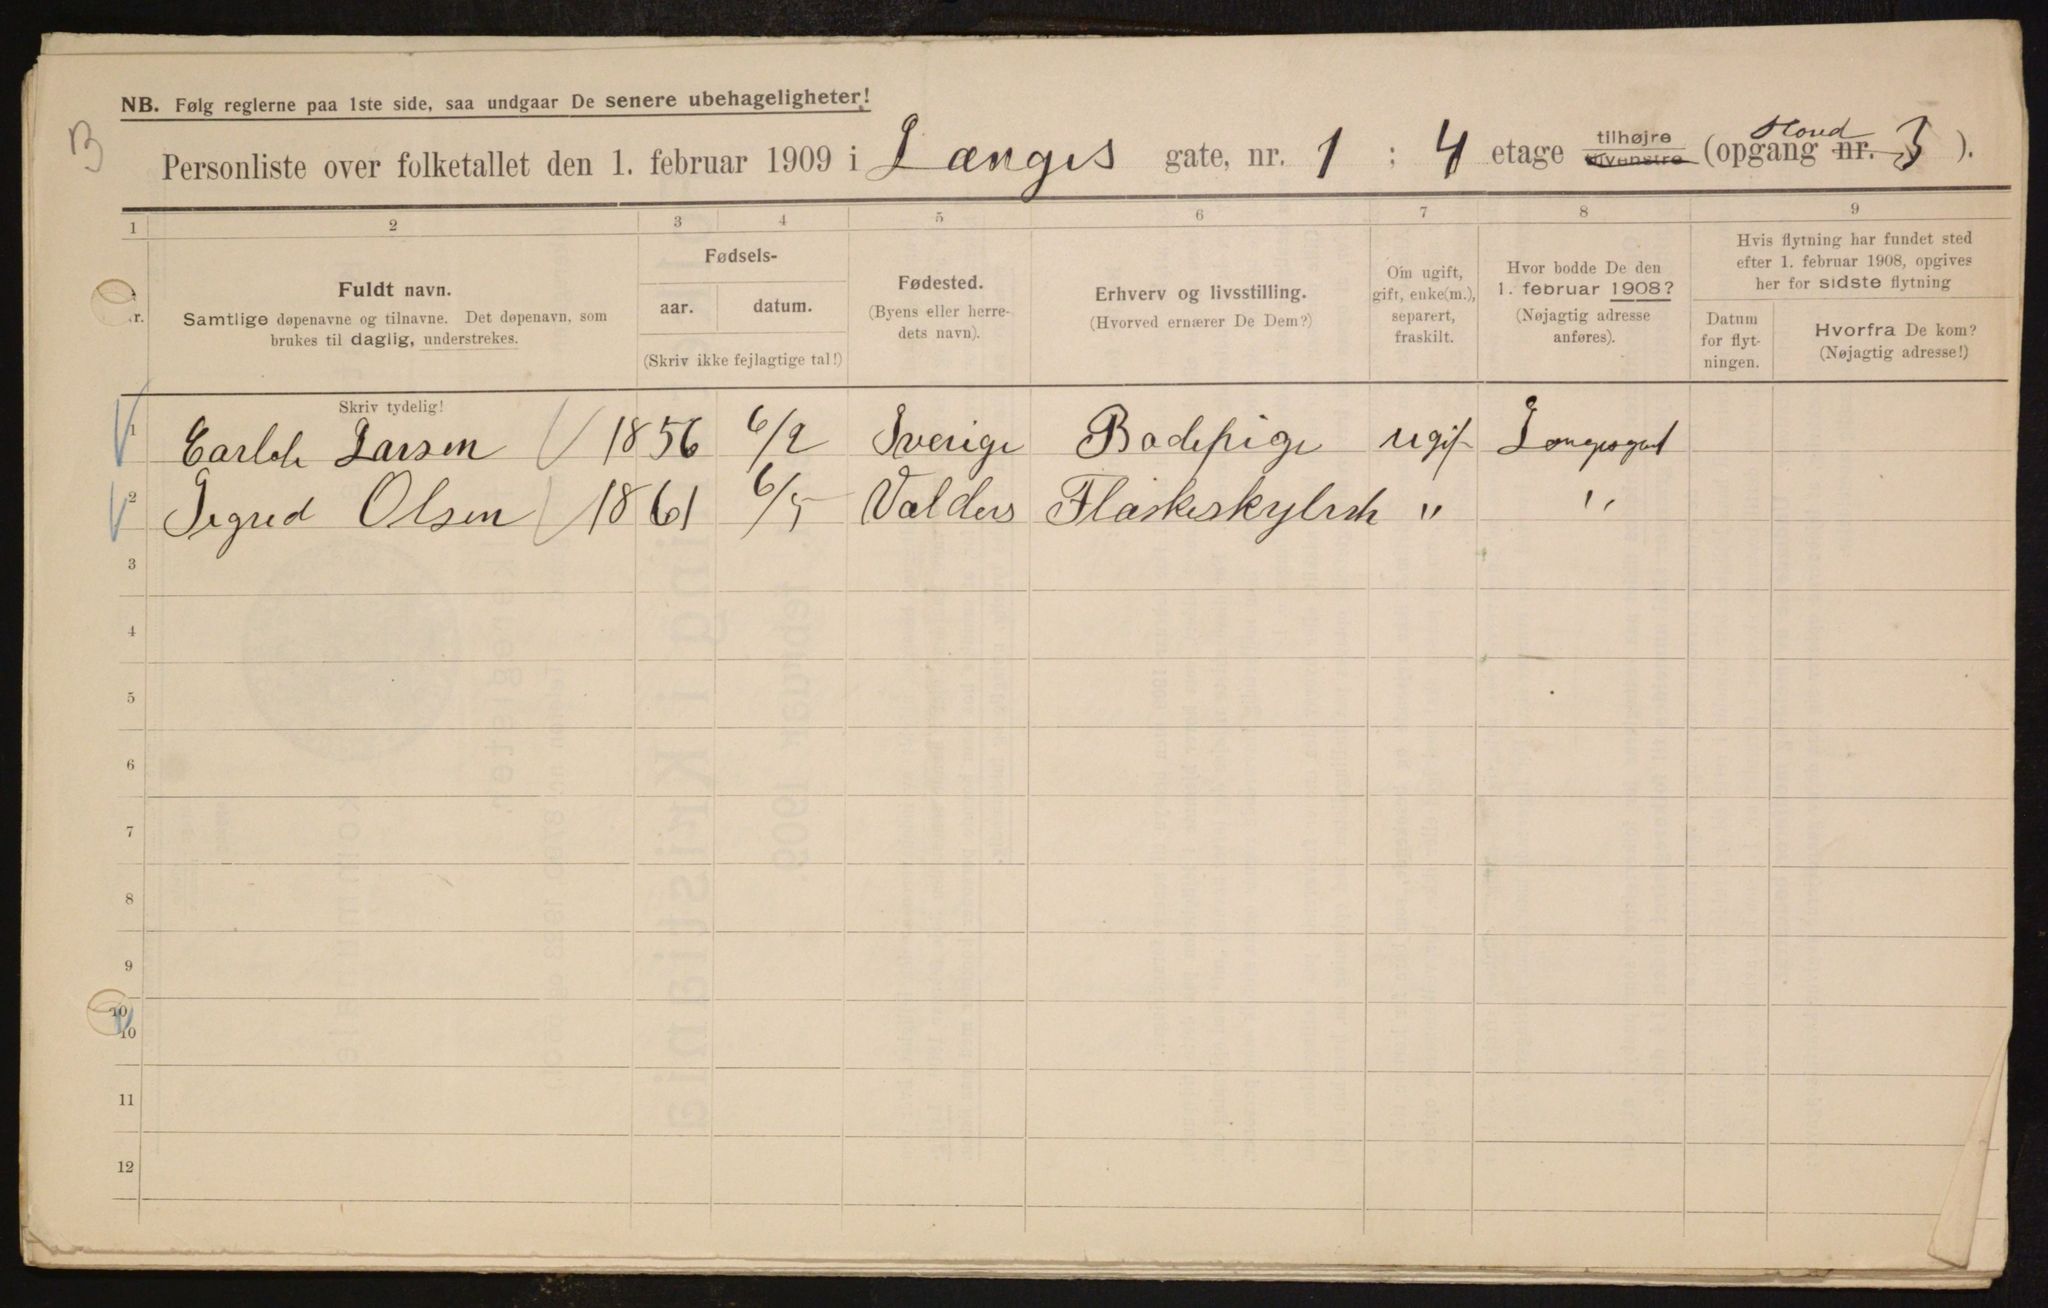 NB. Følg reglerne paa 1ste side, saa undgaar De senere ubehageligheter!
B
Personliste over folketallet den 1. februar 1909 i Længes gate, nr. 1 ; 4 etage tilhøjre tilvenstre (opgang nr. 3 ).
1 2 3 4 5 6 7 8 9
Fuldt navn.
Samtlige døpenavne og tilnavne. Det døpenavn, som
brukes til daglig, understrekes.
Fødsels-
aar. datum.
(Skriv ikke fejlagtige tal!)
Fødested.
(Byens eller herre-
dets navn).
Erhverv og livsstilling.
(Hvorved ernærer De Dem?)
Om ugift,
gift, enke(m.),
separert,
fraskilt.
Hvor bodde De den
1. februar 1908?
(Nøjagtig adresse
anføres).
Hvis flytning har fundet sted
efter 1. februar 1908, opgives
her for sidste flytning
Datum
for flyt-
ningen.
Hvorfra De kom?
(Nøjagtig adresse!)
Skriv tydelig!
1 Larsen 1856 6/2 Sverige Badepige ugif
2 Sigrid Olsen 1861 6/5 Valders " "
3
4
5
6
7
8
9
10
10
11
12